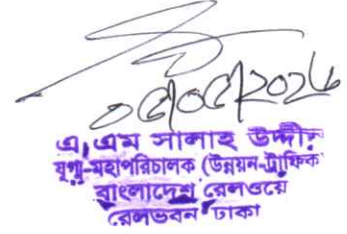 ০৫/০৫/২০২৬
এ, এম সালাহ উদ্দীন
যুগ্ম-মহাপরিচালক (উন্নয়ন-ট্রাফিক
বাংলাদেশ রেলওয়ে
রেলভবন ঢাকা